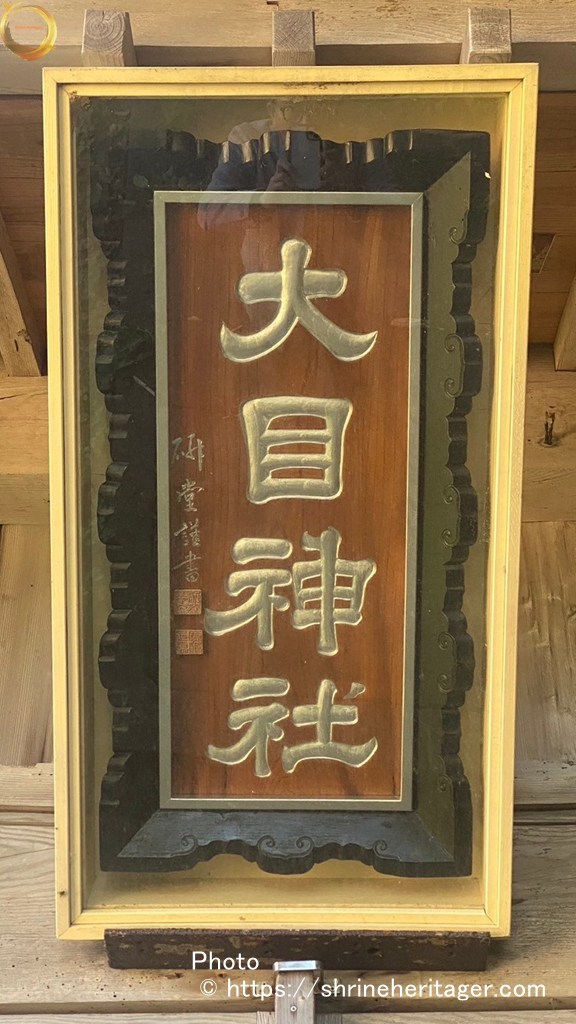 大目神社
研堂謹書
Photo
© https://shrineheritager.com